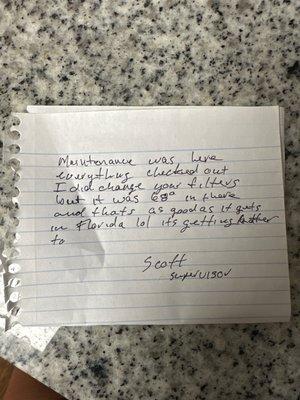 Maintenance was here
everything checked out
I did change your filters
but it was 68° in there
and thats as good as it gets
in Florida lol its getting hotter
to
Scott
supervisor